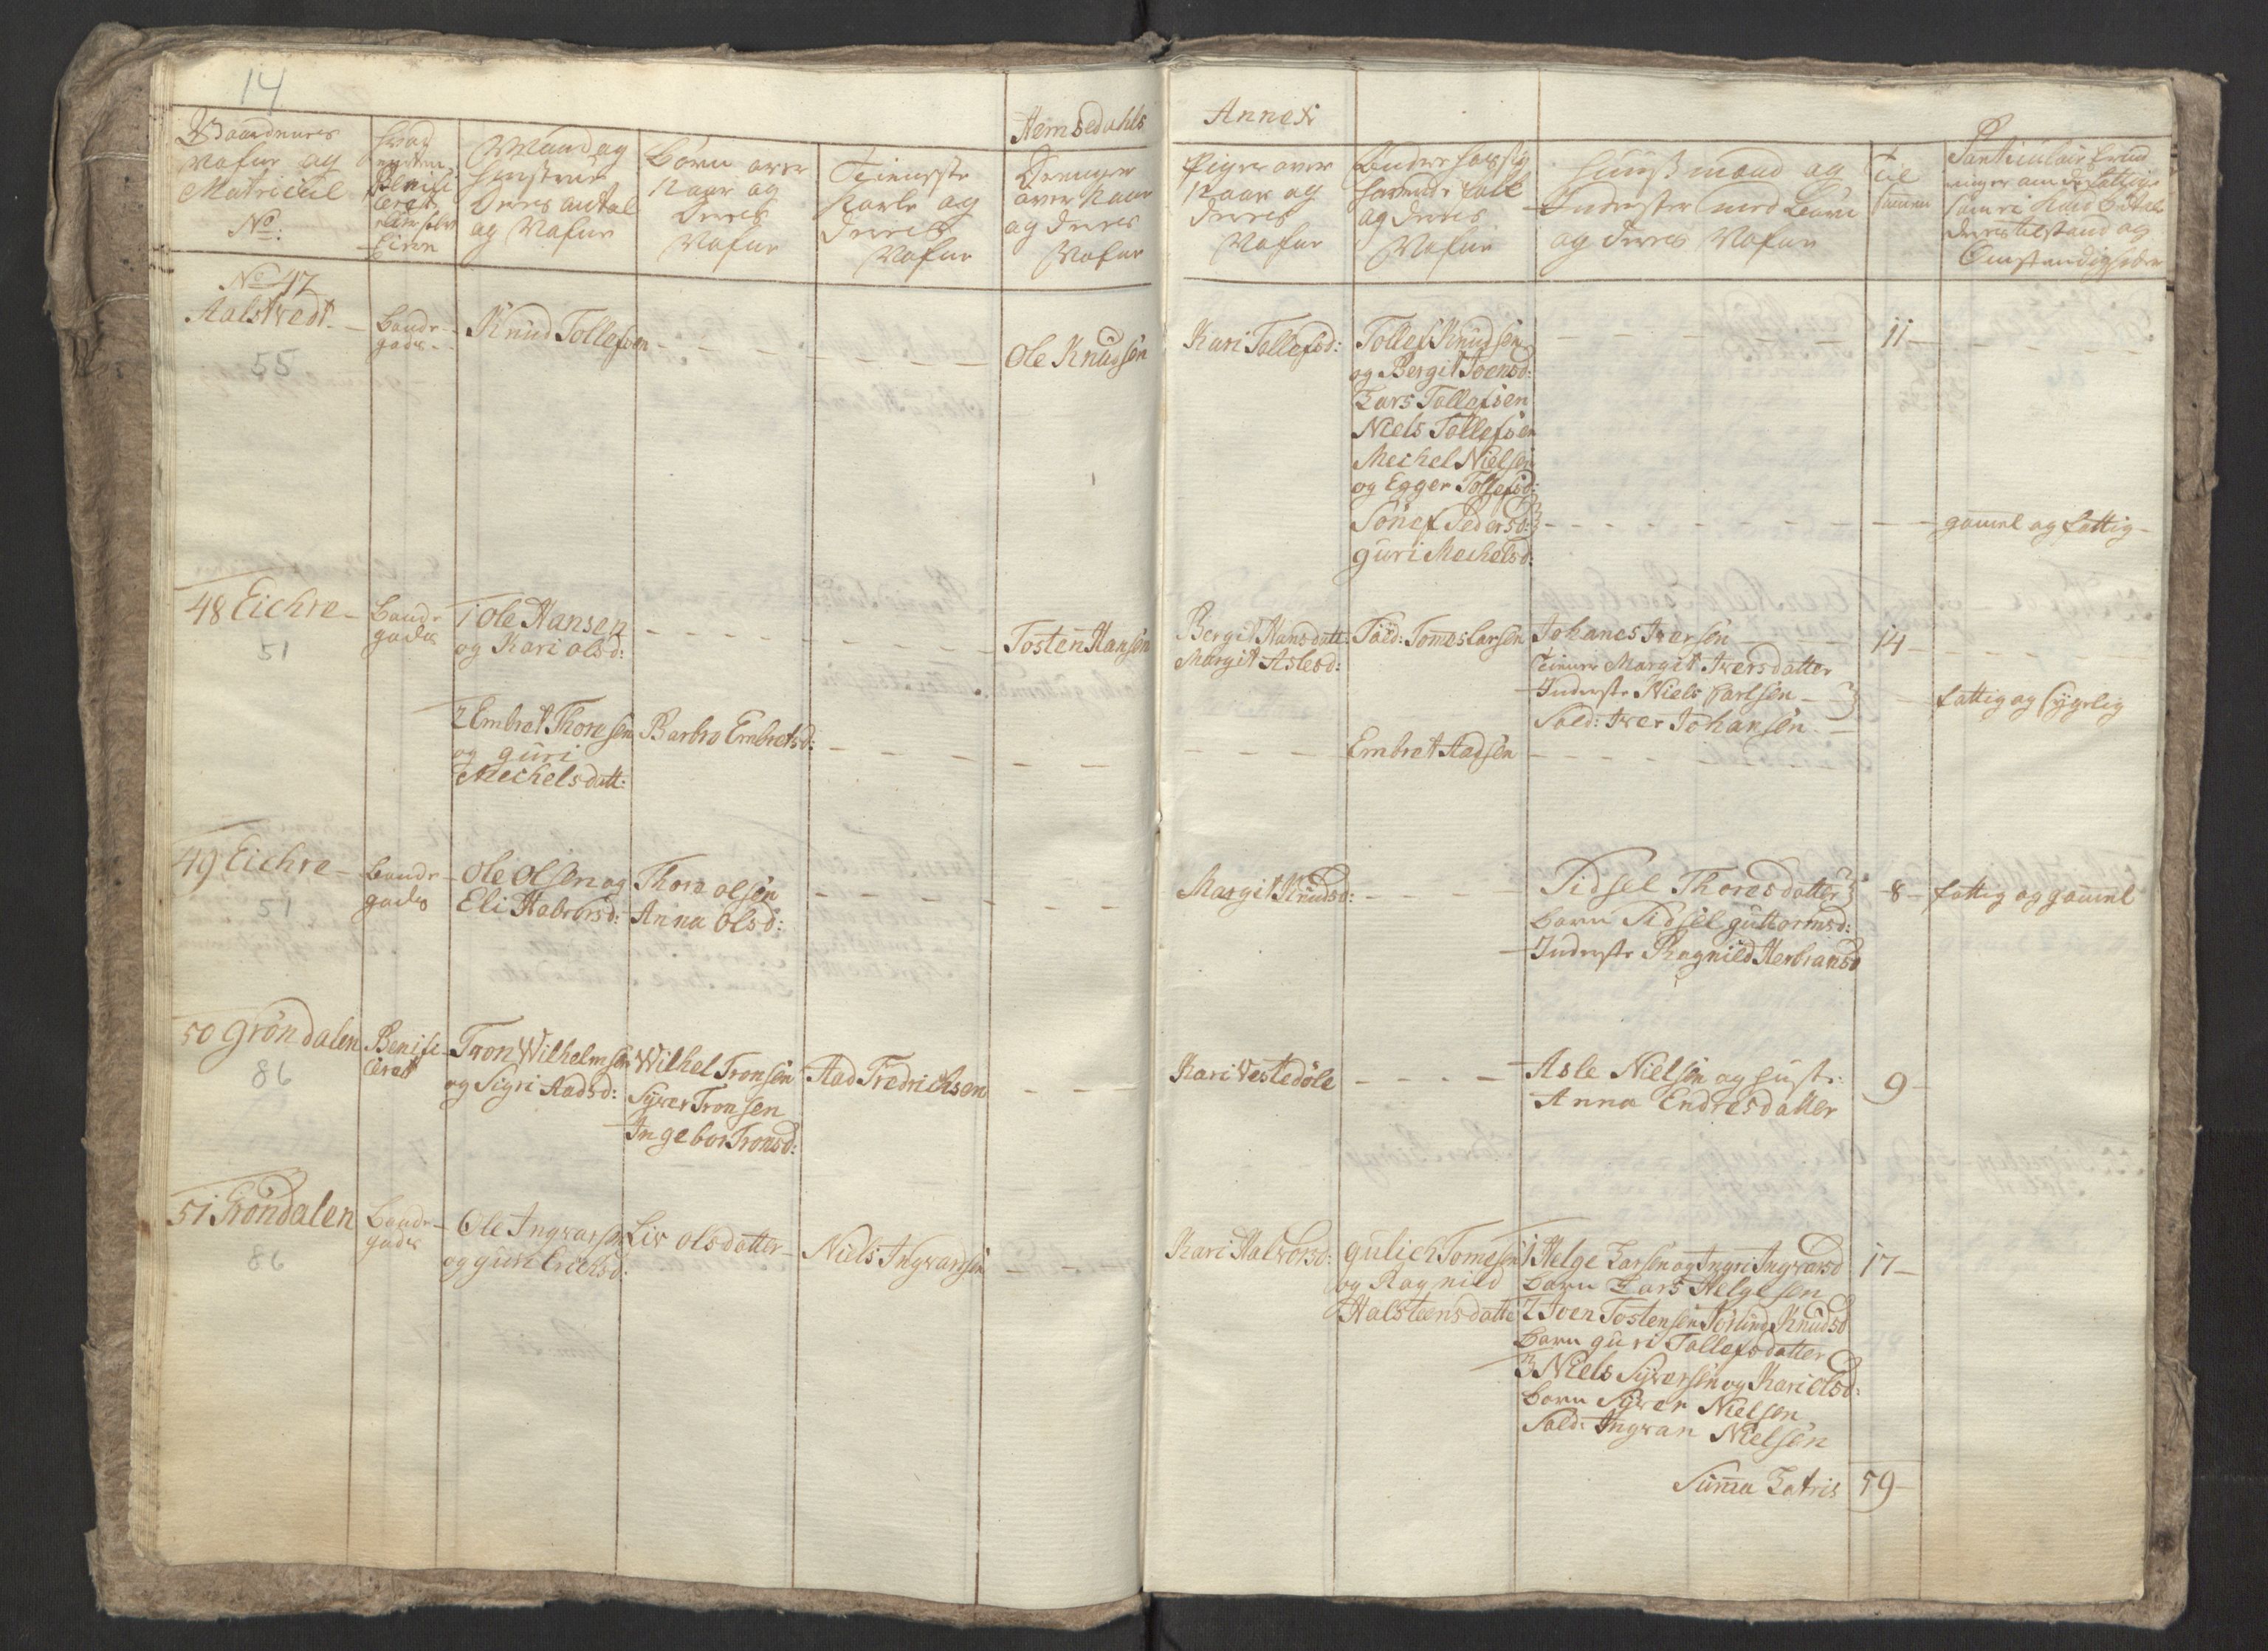 14
Hemsedahls
Annex
Gaardenes
Nafne og
Matricul
No:
Hvad
enten
Benifi
ceret
eller
Eien
Mand og
Hustrue
Deres antal
og Nafne
Börn over
12 aar og
Deres
Nafne
Tieneste
Karle og
Deres
Nafne
Drenger
over 12 aar
og Deres
Nafne
Piger over
12 aar og
Deres
Nafne
og Deres
Nafne
Huusmænd og
Inderster med Börn
og Deres Nafne
Til
sammen
Deres tilstand og
Omstendigheder
No 47
Aalstvedt
55
Bonde
gods
Knud Tollefsen
Ole Knudsen
Kari Tollefsd:
Tollef Knudsen
og Bergit Joensd:
Lars Tollefsen
Niels Tollefsen
Mechel Nielsen
og Egger Tollefsd:
Sönef Pedersd:
guri Mechelsd:
11
gamel og fattig
48 Eichre
51
Bonde
gods
1 Ole Hansen
og Kari olsd:
Tosten Hansen
Bergit Hansdatt:
Margit Aslesd:
Sold: Tomes Larsen
Johanes Iversen
Tiener Margit Iversdatter
Inderste Niels Carlsen
Sold: Iver Johansen
14
fattig og sygelig
2 Embret Thoresen
og guri
Mechelsdatt:
Barbro Embretsd:
Embret Aadsen
49 Eichre
51
Bonde
gods
Ole Olsen og
Eli Halvorsd:
Thore olsen
Anna olsd:
Margit Knudsd:
Sidsel Thoresdatter
barn Sidsel guttormsd:
Inderste Ragnild Herbransd
8
fattig og gamel
50 Gröndalen
86
Benifi
ceret
Tron Wilhelmsen
og Sigri Aadsd:
Wilhel Tronsen
Syver Tronsen
Ingebor Tronsd:
Aad Fredrichsen
Kari Vestedöle
Asle Nielsen og Hustr:
Anna Endresdatter
9
51 Gröndalen
86
Bonde
gods
Ole Ingvarsen
og guri Erichsd:
Liv olsdatter
Niels Ingvarsen
Kari Halvorsd:
gulich Tomesen
og Ragnild
Halsteensdatte
1 Helge Larsen og Ingri Ingvarsd
barn Lars Helgesen
2 Joen Tostensen Jörlind Knudsd
barn guri Tollefsdatter
3 Niels Syversen og Kari olsd:
barn Syver Nielsen
Sold: Ingvar Nielsen
17
Suma Latris 59